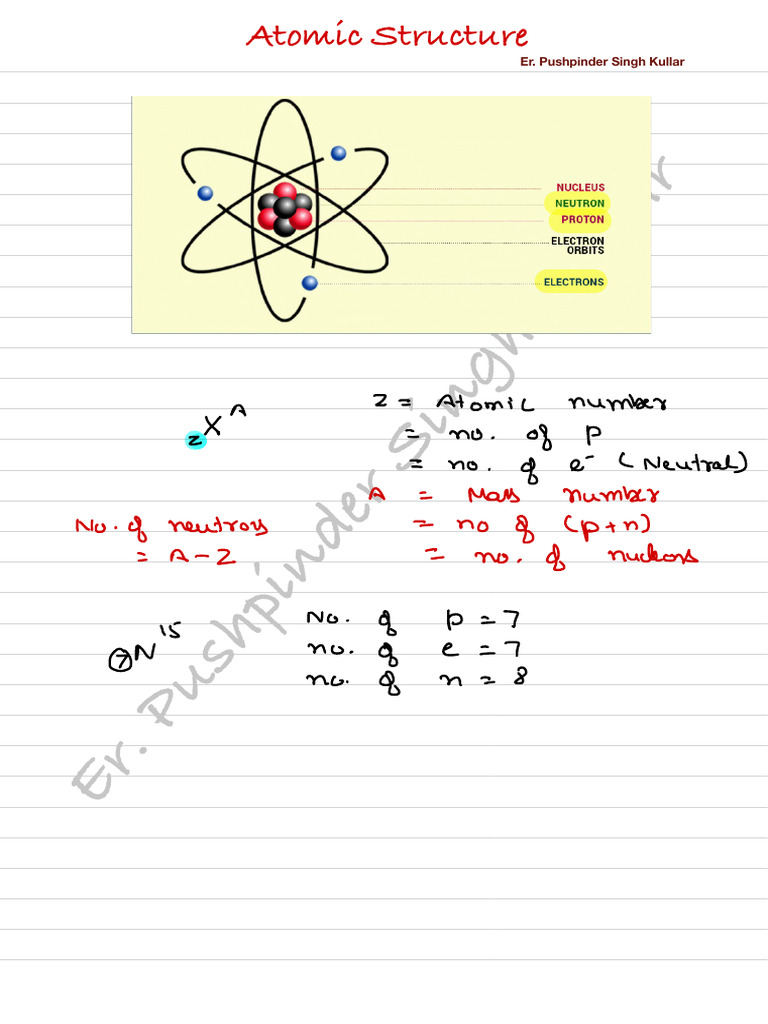 Atomic Structure
Er. Pushpinder Singh Kullar
NUCLEUS
NEUTRON
PROTON
ELECTRON
ORBITS
ELECTRONS
zXᴬ
Z = Atomic number
= no. of p
= no. of e⁻ (Neutral)
A = Mass number
= no of (p+n)
= no. of nucleons
No. of neutrons
= A - Z
₇N¹⁵
No. of p = 7
no. of e = 7
no. of n = 8
Er. Pushpinder Singh Kullar